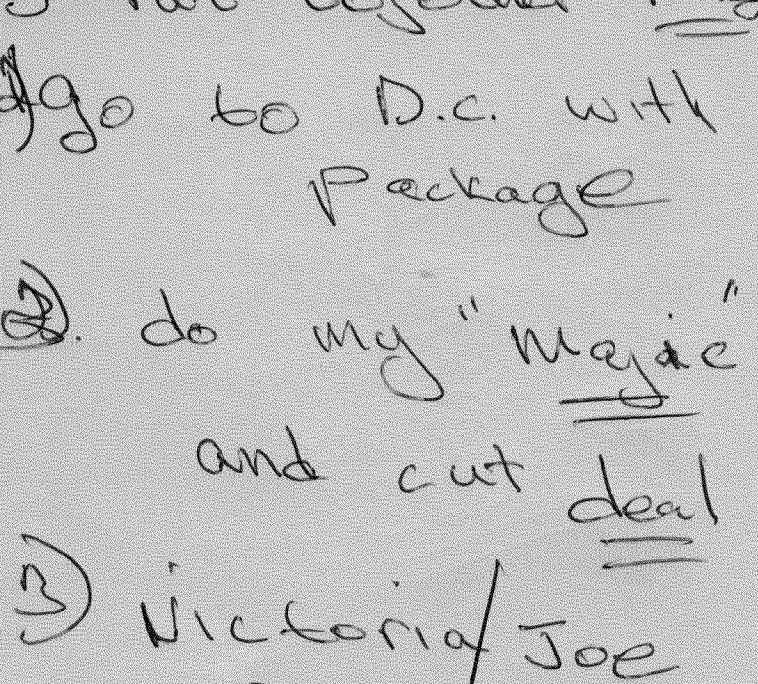 1) go to D.C. with
package
2). do my "Majic"
and cut deal
3) Victoria/Joe